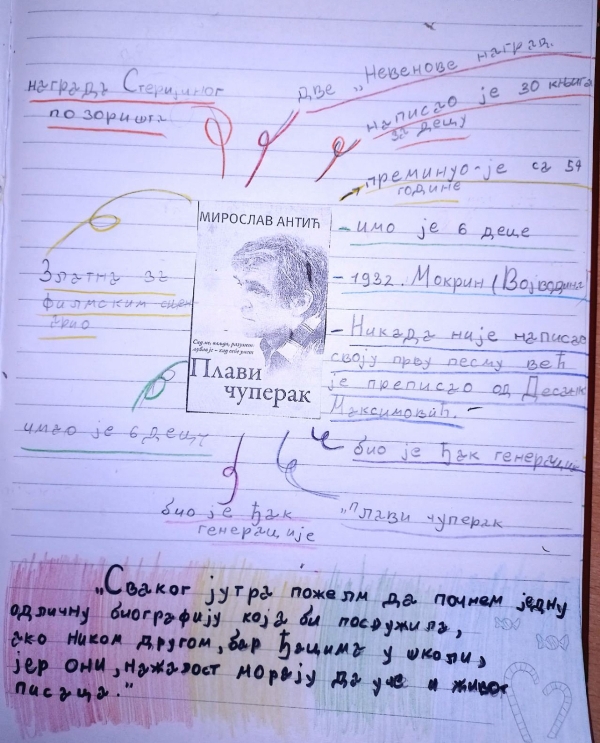 награда Стеријиног
позоришта
две „Невенове наград.
написао је 30 књига
за децу
преминуо-је са 54
године
МИРОСЛАВ АНТИЋ
Плави
чуперак
- имо је 6 деце
- 1932. Мокрин (Војводина)
- Никада није написао
своју прву песму већ
је преписао од Десанк
Максимовић. -
Златна за
филмским
имао је 6 децу
био је ђак генерације
био је ђак
генерације
„Плави чуперак
„Сваког јутра пожелм да почнем једну
одличну биографију која би послужила,
ако ником другом, бар ђацима у школи,
јер они, нажалост морају да уче и живот
писаца."